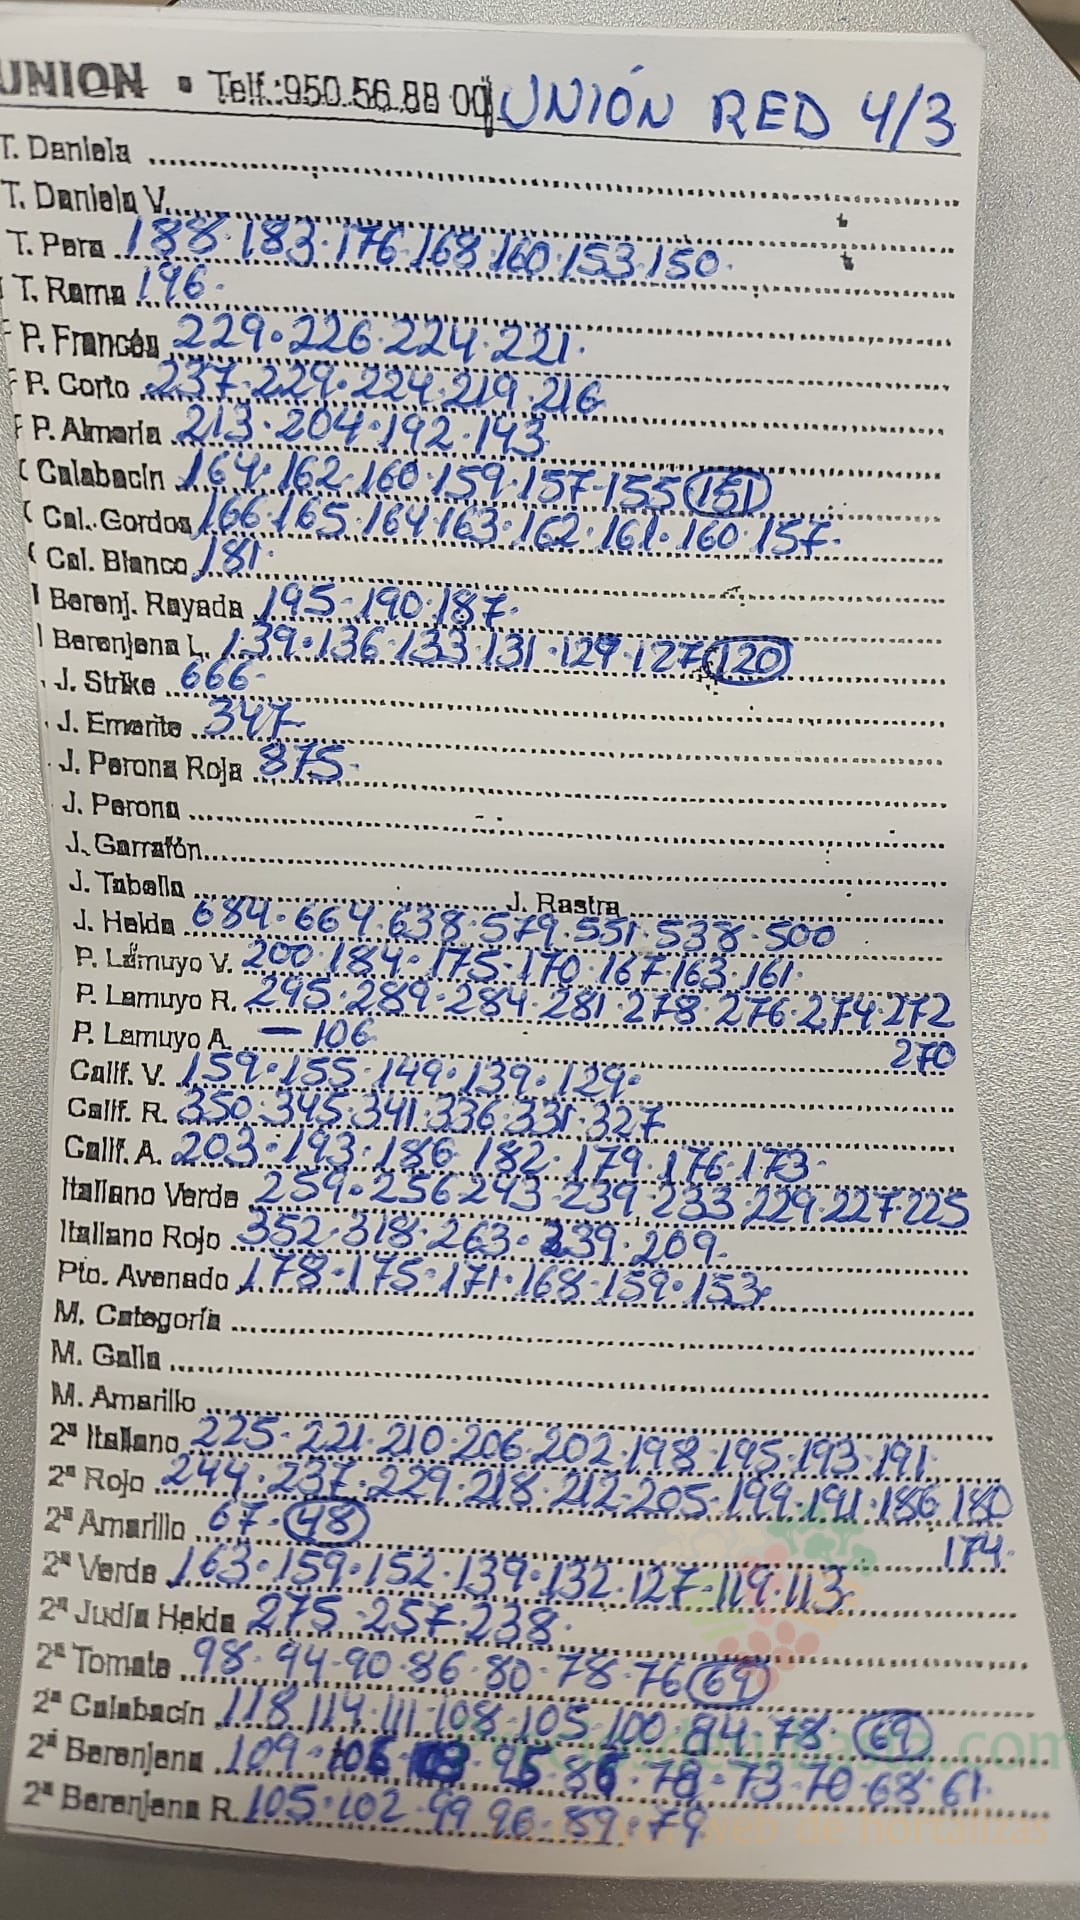 UNION • Telf.:950.56.88 00 UNIÓN RED 4/3
T. Daniela
T. Daniela V.
T. Pera 188·183·176·168·160·153·150·
T. Rama 196·
P. Francés 229·226·224·221·
P. Corto 237·229·224·219·216
P. Almería 213·204·192·143
Calabacín 164·162·160·159·157·155 (151)
Cal. Gordos 166·165·164·163·162·161·160·157·
Cal. Blanco 181·
Berenj. Rayada 195·190·187·
Berenjena L. 139·136·133·131·129·127 (120)
J. Strike 666·
J. Emerite 347
J. Perona Roja 875·
J. Perona
J. Garrafón
J. Tabella J. Rastra
J. Helda 684·664·638·579·551·538·500
P. Lamuyo V. 200·184·175·170·167·163·161·
P. Lamuyo R. 295·289·284·281·278·276·274·272
270
P. Lamuyo A. — 106
Calif. V. 159·155·149·139·129·
Calif. R. 350·345·341·336·331·327
Calif. A. 203·193·186·182·179·176·173·
Italiano Verde 259·256·243·239·233·229·227·225
Italiano Rojo 352·318·263·239·209·
Pto. Avenado 178·175·171·168·159·153·
M. Categoría
M. Galia
M. Amarillo
2ª Italiano 225·221·210·206·202·198·195·193·191·
2ª Rojo 244·237·229·218·212·205·199·191·186·180
174·
2ª Amarillo 67·(48)
2ª Verde 163·159·152·139·132·127·119·113·
2ª Judía Helda 275·257·238·
2ª Tomate 98·94·90·86·80·78·76 (69)
2ª Calabacín 118·114·111·108·105·100·84·78·(69)
2ª Berenjena 109·106·103·95·86·78·73·70·68·61·
2ª Berenjena R. 105·102·99·96·89·79
web de hortalizas